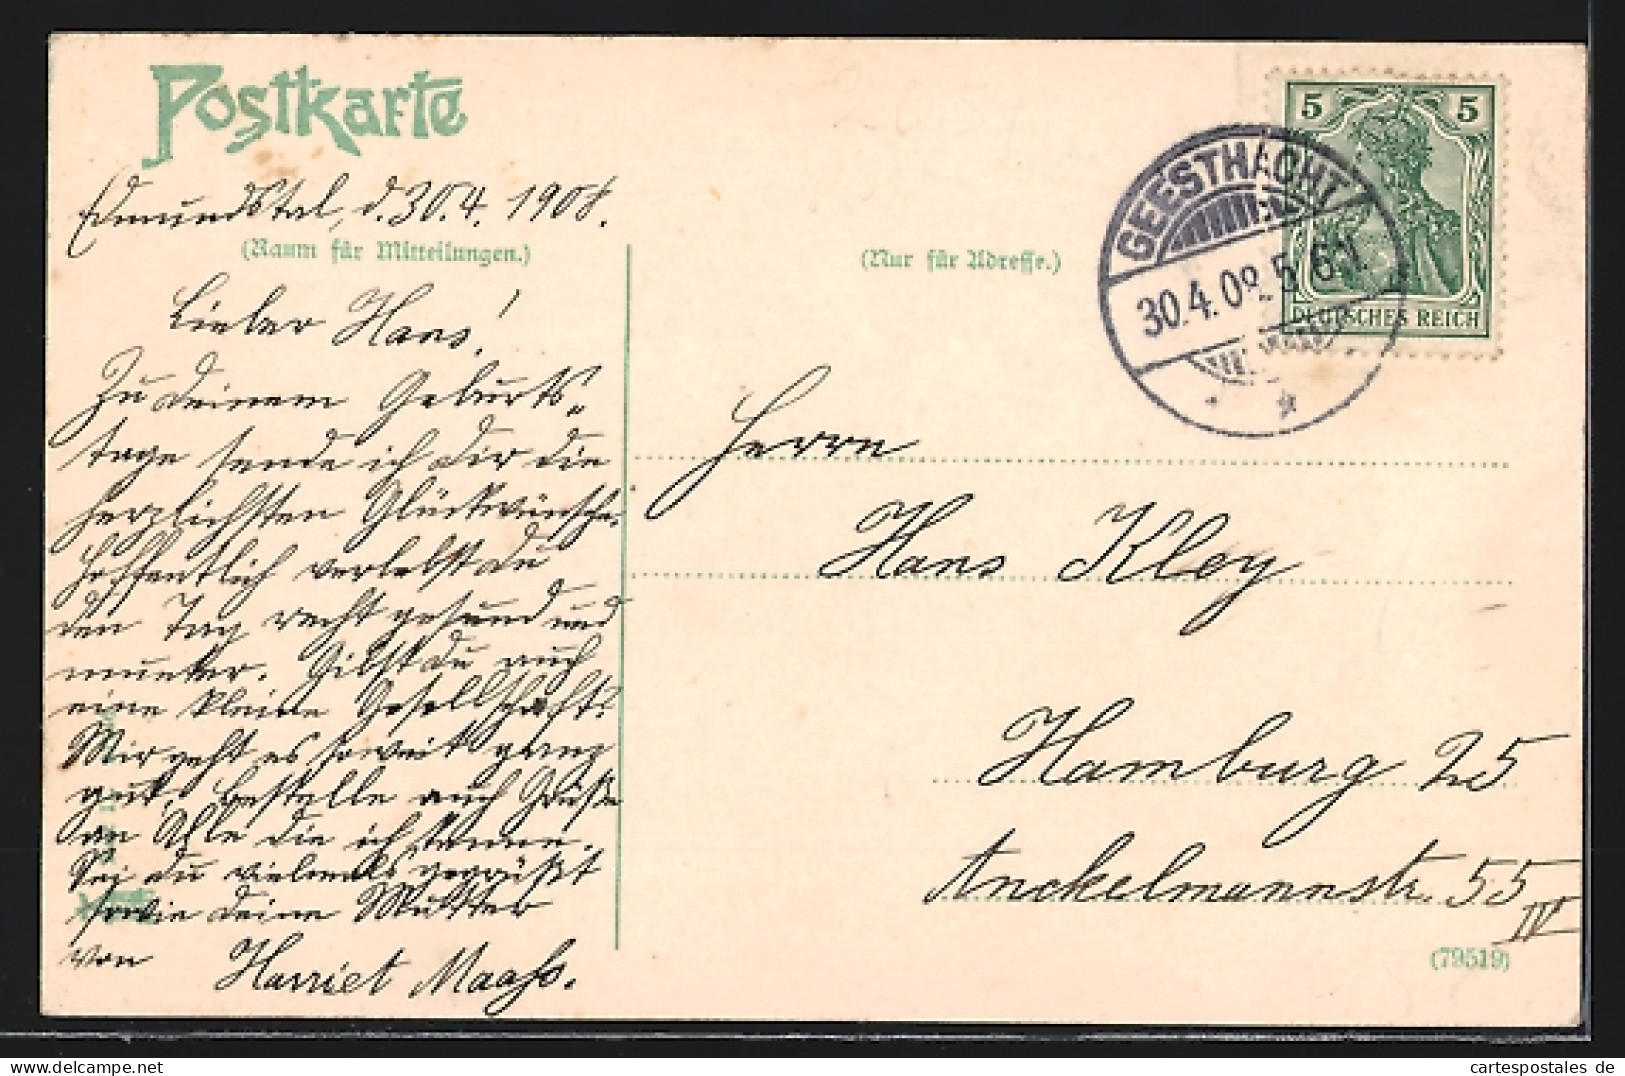 Postkarte
Edmundstal, d. 30.4. 1908.
(Raum für Mitteilungen.)
Lieber Hans!
Zu deinem Geburts-
tage sende ich dir die
herzlichsten Glückwünsche.
Hoffentlich verlebst du
den Tag recht gesund und
munter. Gibst du auch
eine kleine Gesellschaft?
Mir geht es soweit ganz
gut. Bestelle auch Grüße
an Alle die ich kenne.
Sei du vielmals gegrüßt
sowie deine Mutter
von Harriet Maass.
(Nur für Adresse.)
GEESTHACHT
30.4.08. 5-6N.
5 5
DEUTSCHES REICH
Herrn
Hans Kley
Hamburg 25
Anckelmannstr. 55
IV
(79519)
cartespostales de